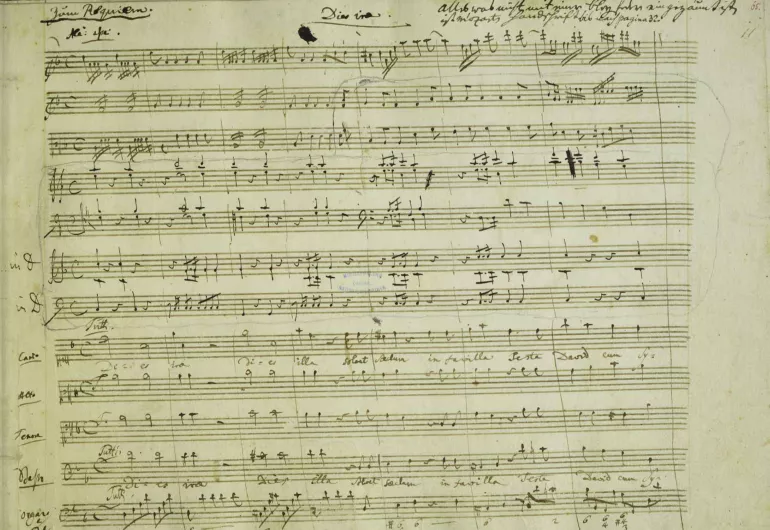 Zum Requiem.
Dies irae.
Alles was nicht mit einer Bley feder eingezäumt ist
ist Mozarts Handschrift bis Pagina 32.
All: assai.
in D
in D
Tutti.
Canto
Di-es irae Di-es illa solvet saeclum in favilla Teste David cum Sy-
Alto
Tenore
Tutti.
Basso
Di-es irae Dies illa solvet saeclum in favilla Teste David cum Sy-
Tutti
organo